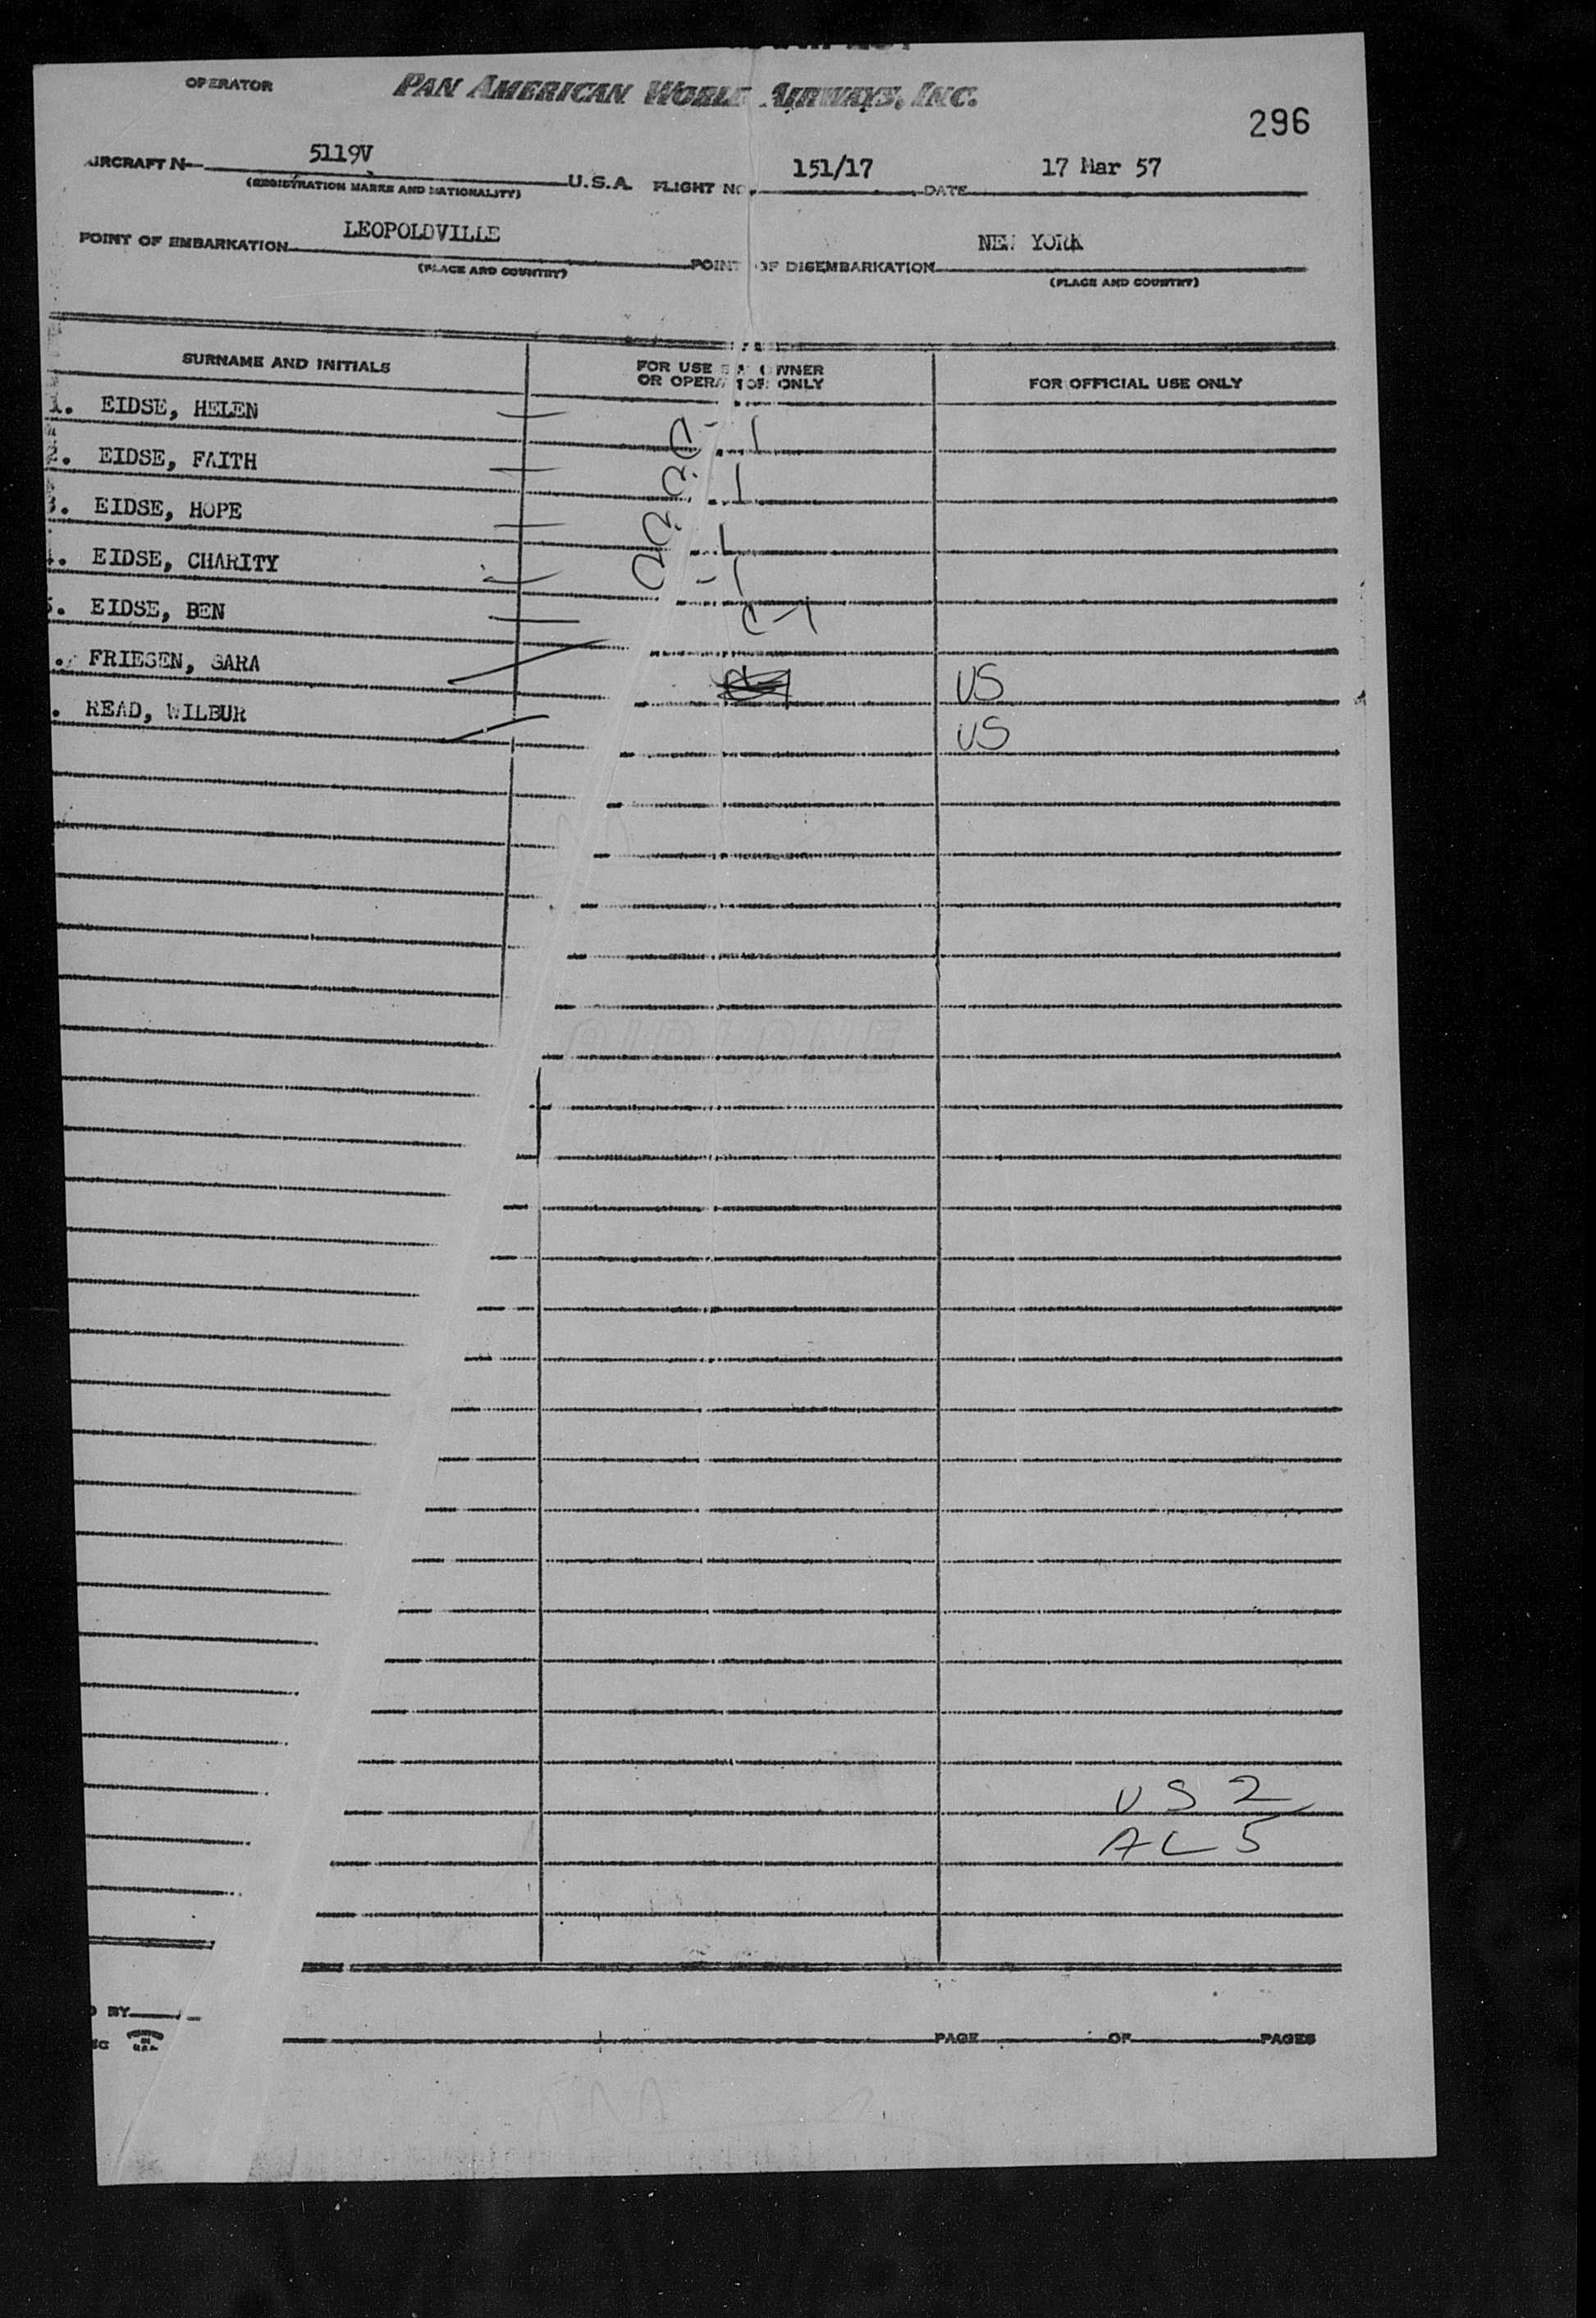 OPERATOR PAN AMERICAN WORLD AIRWAYS, INC.
296
AIRCRAFT N 5119V U.S.A. FLIGHT NO. 151/17 DATE 17 Mar 57
(REGISTRATION MARKS AND NATIONALITY)
POINT OF EMBARKATION LEOPOLDVILLE POINT OF DISEMBARKATION NEW YORK
(PLACE AND COUNTRY) (PLACE AND COUNTRY)
SURNAME AND INITIALS FOR USE BY OWNER OR OPERATOR ONLY FOR OFFICIAL USE ONLY
1. EIDSE, HELEN
2. EIDSE, FAITH
3. EIDSE, HOPE
4. EIDSE, CHARITY
5. EIDSE, BEN
. FRIESEN, SARA US
. READ, WILBUR US
AIRLANE
US 2
AL 5
D BY
PRINTED IN U.S.A.
PAGE OF PAGES